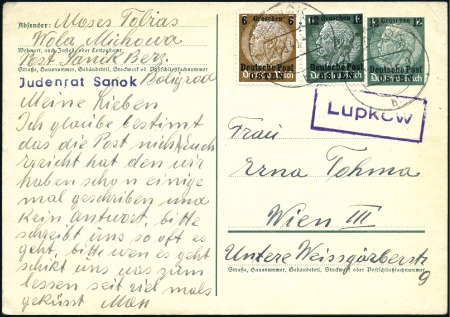 Absender: Moses Tobias
Wola Michowa
Wohnort, auch Zustell- oder Leitpostamt
Post Sanok Bez.
Straße, Hausnummer, Gebäudeteil, Stockwerk od. Postschließfachnummer
Baligrod
Judenrat Sanok
Meine Lieben
Ich glaube bestimmt
das die Post nicht euch
erreicht hat den wir
haben schon einige
mal geschrieben und
kein antwort, bitte
schreibt uns so oft es
geht, bitte wen es geht
schikt uns was zum
lessen seit viel mals
geküsst
6 Groschen 6
Deutsche Post
OSTEN
12 Groschen 12
Deutsche Post
OSTEN
12 Groschen 12
Deutsche Post
OSTEN
Lupkow
Frau
Erna Tohma
Wien III
Untere Weissgärberstr
Straße, Hausnummer, Gebäudeteil, Stockwerk oder Postschließfachnummer
9